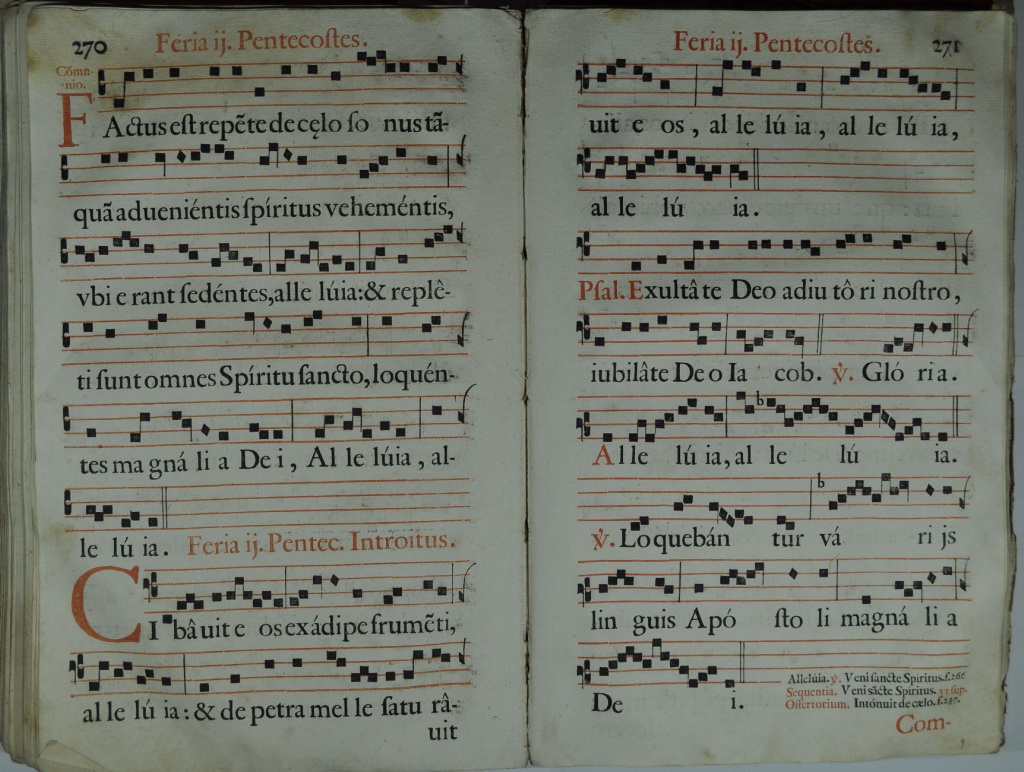 270 Feria ij. Pentecoſtes.
Cómu-
nio.
FActus eſt repẽte de cęlo ſo nus tã-
quã adueniéntis ſpíritus veheméntis,
vbi e rant ſedéntes, alle lúia: & replê-
ti ſunt omnes Spíritu ſancto, loquén-
tes ma gná li a De i, Al le lúia, al-
le lú ia. Feria ij. Pentec. Introitus.
CI bâuit e os exádipe frumẽti,
al le lú ia: & de petra mel le ſatu râ-
uit
Feria ij. Pentecoſtes. 271
uit e os, al le lú ia, al le lú ia,
al le lú ia.
Pſal. Exultâ te Deo adiu tô ri noſtro,
iubilâte De o Ia cob. ℣. Gló ria.
Alle lú ia, al le lú ia.
℣. Lo quebán tur vá ri js
lin guis Apó ſto li magná li a
De i.
Allelúia. ℣. Veni ſancte Spiritus. f.266
Sequentia. Veni sãcte Spiritus. ſup.
Offertorium. Intónuit de cælo. f.237.
Com-